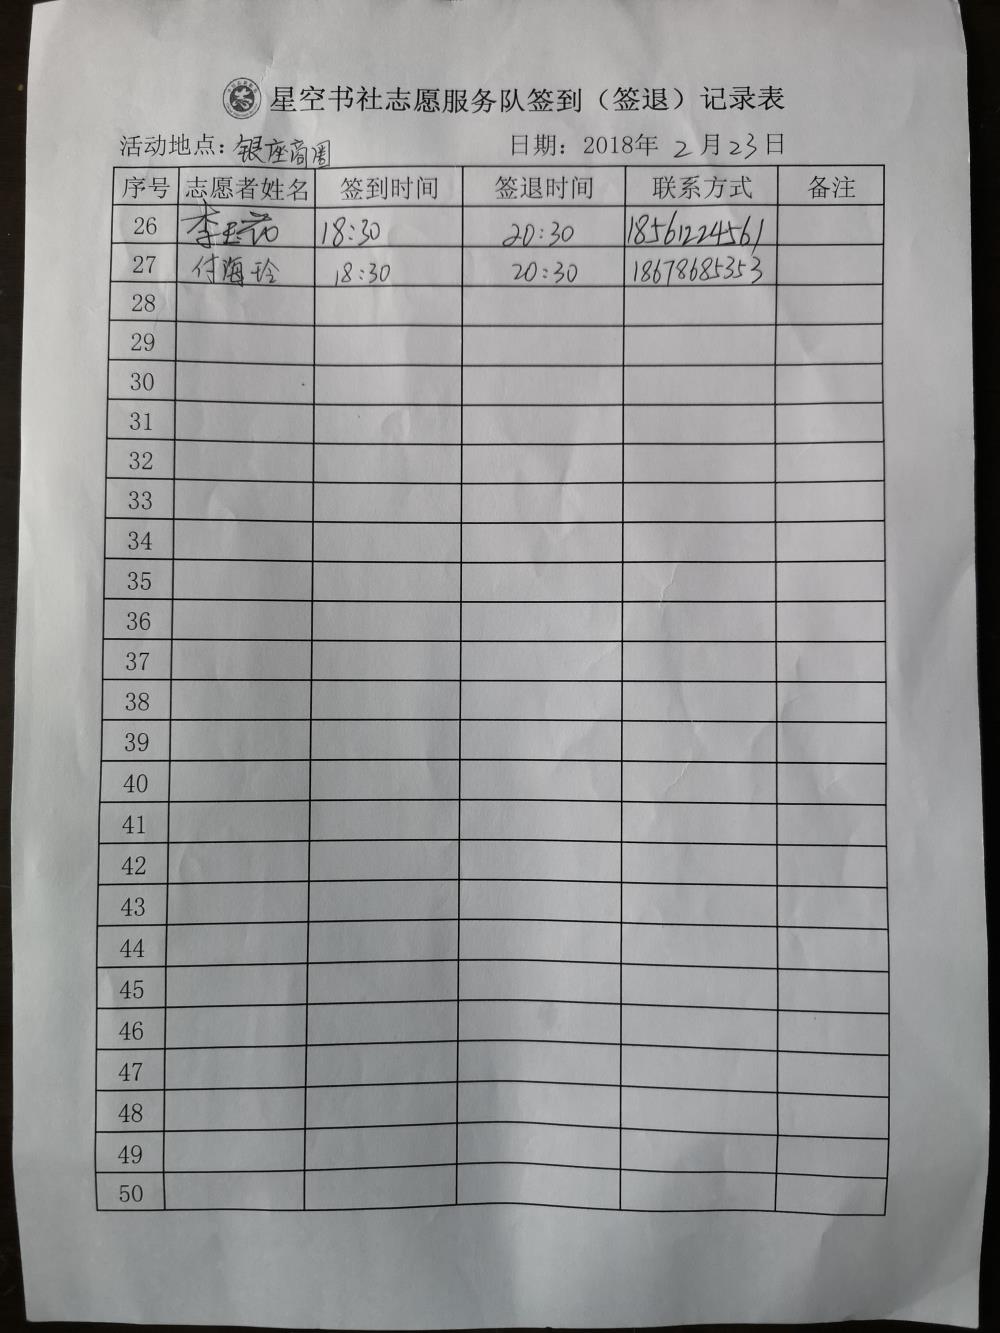 星空书社志愿服务队签到（签退）记录表
活动地点：银座商圈 日期：2018年 2 月 23 日
序号 志愿者姓名 签到时间 签退时间 联系方式 备注
26 李 18:30 20:30 18561224561
27 付海玲 18:30 20:30 18678685353
28
29
30
31
32
33
34
35
36
37
38
39
40
41
42
43
44
45
46
47
48
49
50